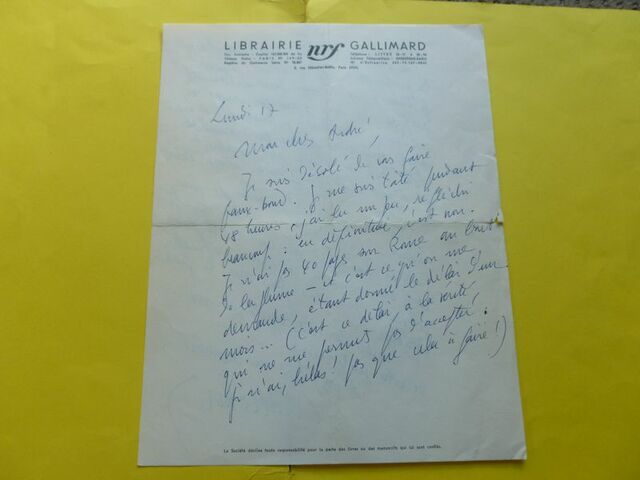 LIBRAIRIE nrf GALLIMARD
5, rue Sébastien-Bottin, Paris (VIIe)
Lundi 17
Mon cher André,
Je suis désolé de vous faire
faux-bond. Je me suis tâté pendant
48 heures, j'ai lu un peu, réfléchi
beaucoup : en définitive, c'est non.
Je n'ai pas 40 pages sur Rome au bout
de la plume — et c'est ce qu'on me
demande, étant donné le délai d'un
mois... (C'est ce délai à la vérité
qui ne me permet pas d'accepter,
je n'ai, hélas! pas que cela à faire!)
La Société décline toute responsabilité pour la perte des livres ou des manuscrits qui lui sont confiés.